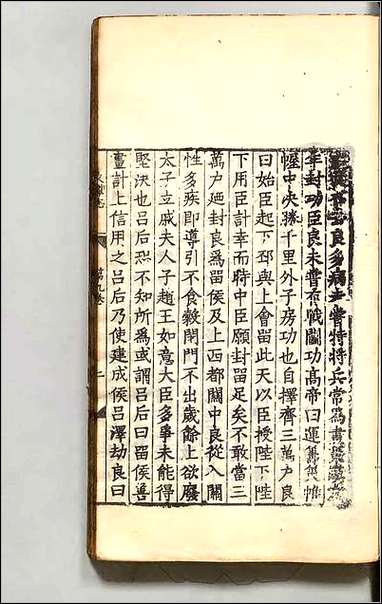 良多病未嘗特將兵常爲畫策
年封功臣良未嘗有戰鬪功高帝曰運籌策帷
幄中決勝千里外子房功也自擇齊三萬户良
曰始臣起下邳與上會留此天以臣授陛下陛
下用臣計幸而時中臣願封留足矣不敢當三
萬户廼封爲留侯及上西都關中良從入關
性多疾即導引不食穀閉門不出歲餘上欲廢
太子立戚夫人子趙王如意大臣多事未能得
堅決也吕后恐不知所爲或謂吕后曰留侯善
畫計上信用之吕后乃使建成侯吕澤劫良曰
第九卷 二